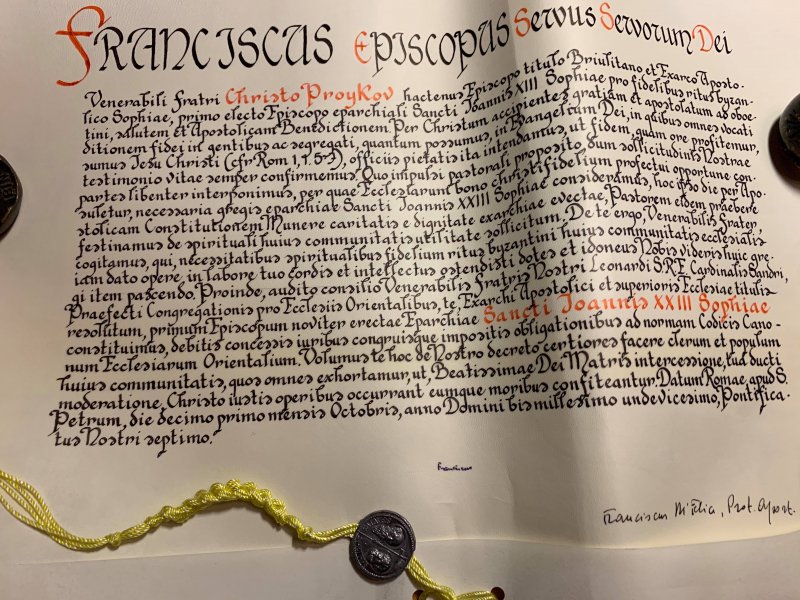 FRANCISCUS Episcopus Servus Servorum Dei
Venerabili Fratri Christo Proykov hactenus Episcopo titulo Briulitano et Exarco Aposto-
lico Sophiae, primo electo Episcopo eparchiali Sancti Ioannis XXIII Sophiae pro fidelibus ritus byzan-
tini, salutem et Apostolicam Benedictionem. Per Christum accipientes gratiam et apostolatum ad oboe-
ditionem fidei in gentibus ac segregati, quantum possumus, in Evangelium Dei, in quibus omnes vocati
sumus Iesu Christi (cfr Rom 1, 1. 5-7), officiis pietatis ita intendamus, ut fidem, quam ore profitemur,
testimonio vitae semper confirmemus. Quo impulsi pastorali proposito, dum sollicitudinis Nostrae
partes libenter interponimus, per quae Ecclesiarum bono christifidelium profectui opportune con-
suletur, necessaria gregis eparchiae Sancti Ioannis XXIII Sophiae consideramus, hoc ipso die per Apo-
stolicam Constitutionem Munere caritatis e dignitate exarchiae evectae, Pastorem eidem praebere
festinamus de spirituali huius communitatis utilitate sollicitum. De te ergo, Venerabilis Frater,
cogitamus, qui, necessitatibus spiritualibus fidelium ritus byzantini huius communitatis ecclesialis
iam dato opere, in labore tuo cordis et intellectus ostendisti dotes et idoneus Nobis videris huic gre-
gi item pascendo. Proinde, audito consilio Venerabilis Fratris Nostri Leonardi S.R.E. Cardinalis Sandri,
Praefecti Congregationis pro Ecclesiis Orientalibus, te, Exarchi Apostolici et superioris Ecclesiae titulis
resolutum, primum Episcopum noviter erectae Eparchiae Sancti Ioannis XXIII Sophiae
constituimus, debitis concessis iuribus congruisque impositis obligationibus ad normam Codicis Cano-
num Ecclesiarum Orientalium. Volumus te hoc de Nostro decreto certiores facere clerum et populum
huius communitatis, quos omnes exhortamur, ut, Beatissimae Dei Matris intercessione, tua ducti
moderatione, Christo iustis operibus occurrant eumque moribus confiteantur. Datum Romae, apud S.
Petrum, die decimo primo mensis Octobris, anno Domini bis millesimo undevicesimo, Pontifica-
tus Nostri septimo.
Franciscus
Franciscus Di Felice, Prot. Apost.